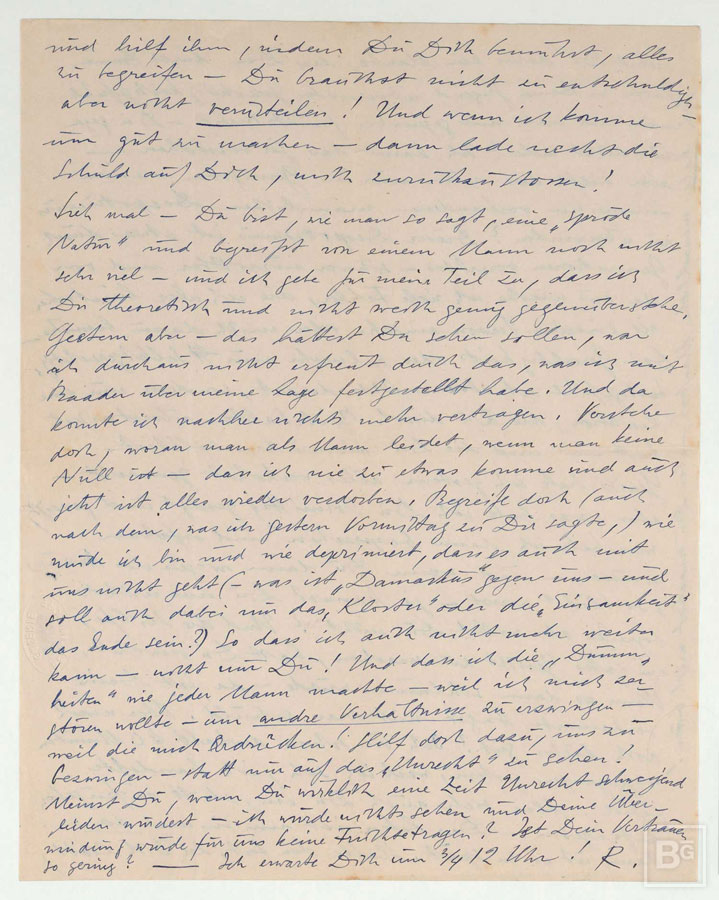 und hilf ihm, indem Du Dich bemühst, alles
zu begreifen — Du brauchst nicht zu entschuldigen —
aber nicht verurteilen! Und wenn ich komme
um gut zu machen — dann lade nicht die
Schuld auf Dich, mich zurückzustossen!
Sieh mal — Du bist, wie man so sagt, eine „spröde
Natur" und begreifst von einem Mann noch nicht
sehr viel — und ich gebe für meine Teil zu, dass ich
Dir theoretisch und nicht weich genug gegenüberstehe.
Gestern aber — das hättest Du sehen sollen, war
ich durchaus nicht erfreut durch das, was ich mit
Baader über meine Lage festgestellt habe. Und da
konnte ich nachher nichts mehr vertragen. Verstehe
doch, woran man als Mann leidet, wenn man keine
Null ist — dass ich nie zu etwas komme und auch
jetzt ist alles wieder verdorben. Begreife doch (auch
nach dem, was ich gestern Vormittag zu Dir sagte,) wie
müde ich bin und wie deprimiert, dass es auch mit
uns nicht geht (— was ist „Damaskus" gegen uns — und
soll auch dabei nur das „Kloster" oder die „Einsamkeit"
das Ende sein?) So dass ich auch nicht mehr weiter
kann — nicht nur Du! Und dass ich die „Dumm-
heiten" wie jeder Mann machte — weil ich mich zer-
stören wollte — um andre Verhältnisse zu erzwingen —
weil die mich Erdrücken! Hilf doch dazu, uns zu
bezwingen — statt nur auf das „Unrecht" zu sehen!
Meinst Du, wenn Du wirklich eine Zeit Unrecht schweigend
leiden würdest — ich würde nichts sehen und Deine Über-
windung würde für uns keine Früchte tragen? Ist Dein Vertrauen
so gering? — Ich erwarte Dich um 3/4 12 Uhr! R.
BG